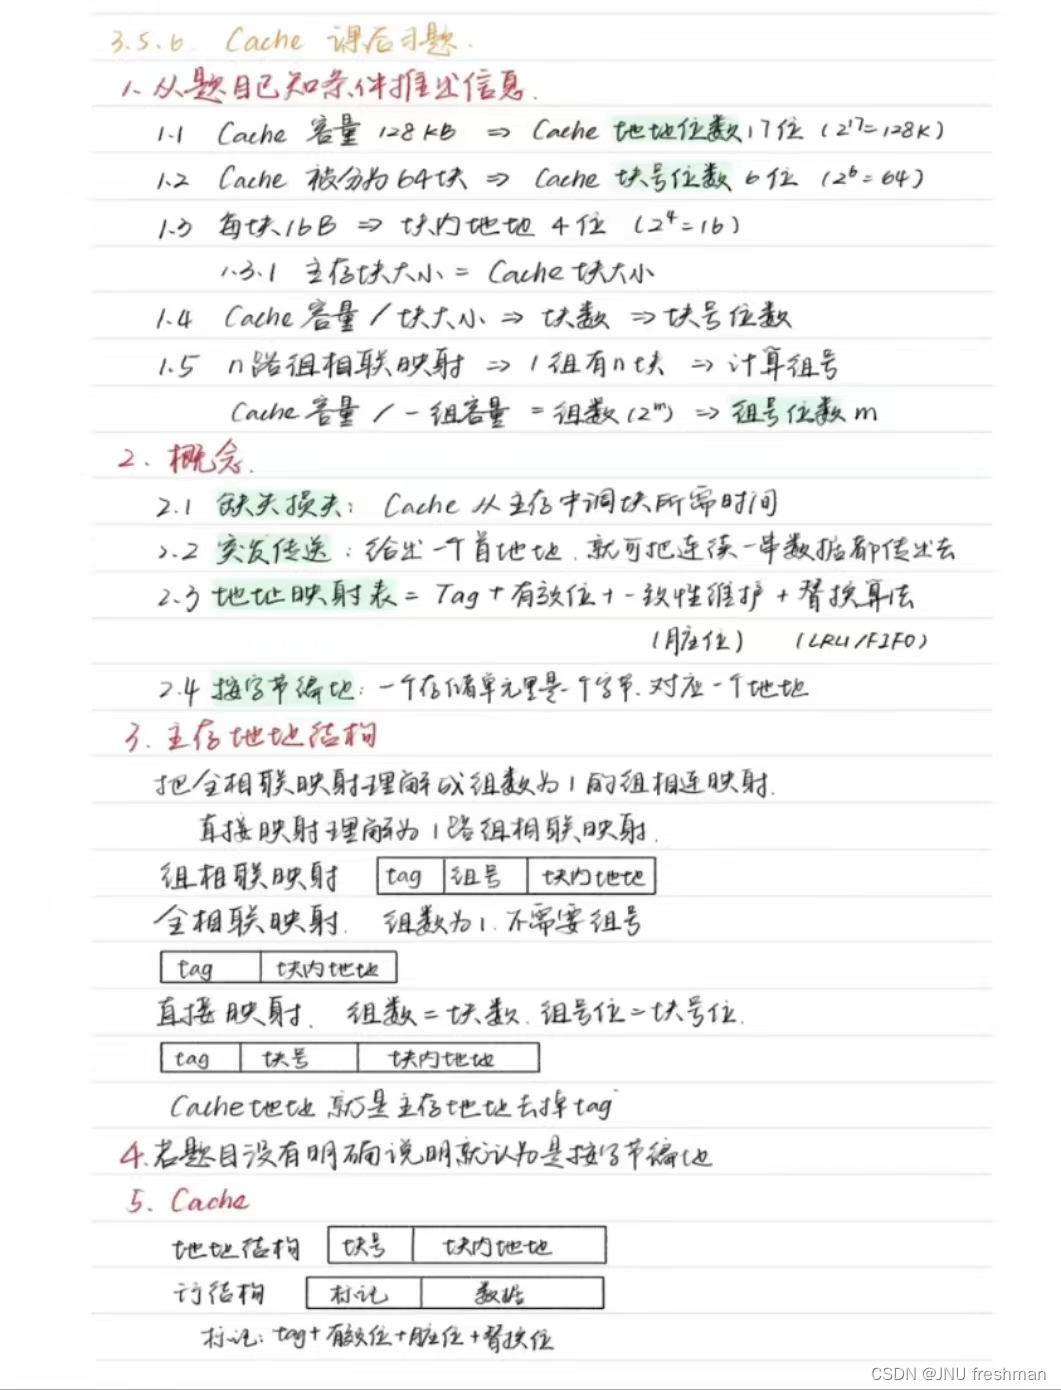 3.5.6. Cache 课后习题.
1. 从题目已知条件推出信息.
1.1 Cache 容量 128KB ⇒ Cache 地址位数17位 (2¹⁷=128K)
1.2 Cache 被分为64块 ⇒ Cache 块号位数 6位 (2⁶=64)
1.3 每块16B ⇒ 块内地址 4位 (2⁴=16)
1.3.1 主存块大小 = Cache 块大小
1.4 Cache 容量 / 块大小 ⇒ 块数 ⇒ 块号位数
1.5 n路组相联映射 ⇒ 1组有n块 ⇒ 计算组号
Cache容量 / 一组容量 = 组数(2ᵐ) ⇒ 组号位数 m
2. 概念.
2.1 缺失损失: Cache 从主存中调块所需时间
2.2 突发传送: 给出一个首地址.就可把连续一串数据都传出去
2.3 地址映射表 = Tag + 有效位 + 一致性维护 + 替换算法
(脏位) (LRU/FIFO)
2.4 按字节编址: 一个存储单元里是一个字节.对应一个地址
3. 主存地址结构
把全相联映射理解成组数为1的组相连映射.
直接映射理解为1路组相联映射.
组相联映射 tag 组号 块内地址
全相联映射. 组数为1.不需要组号
tag 块内地址
直接映射. 组数=块数.组号位=块号位.
tag 块号 块内地址
Cache地址就是主存地址去掉tag
4.若题目没有明确说明就认为是按字节编址
5. Cache
地址结构 块号 块内地址
行结构 标记 数据
标记: tag+有效位+脏位+替换位
CSDN @JNU freshman